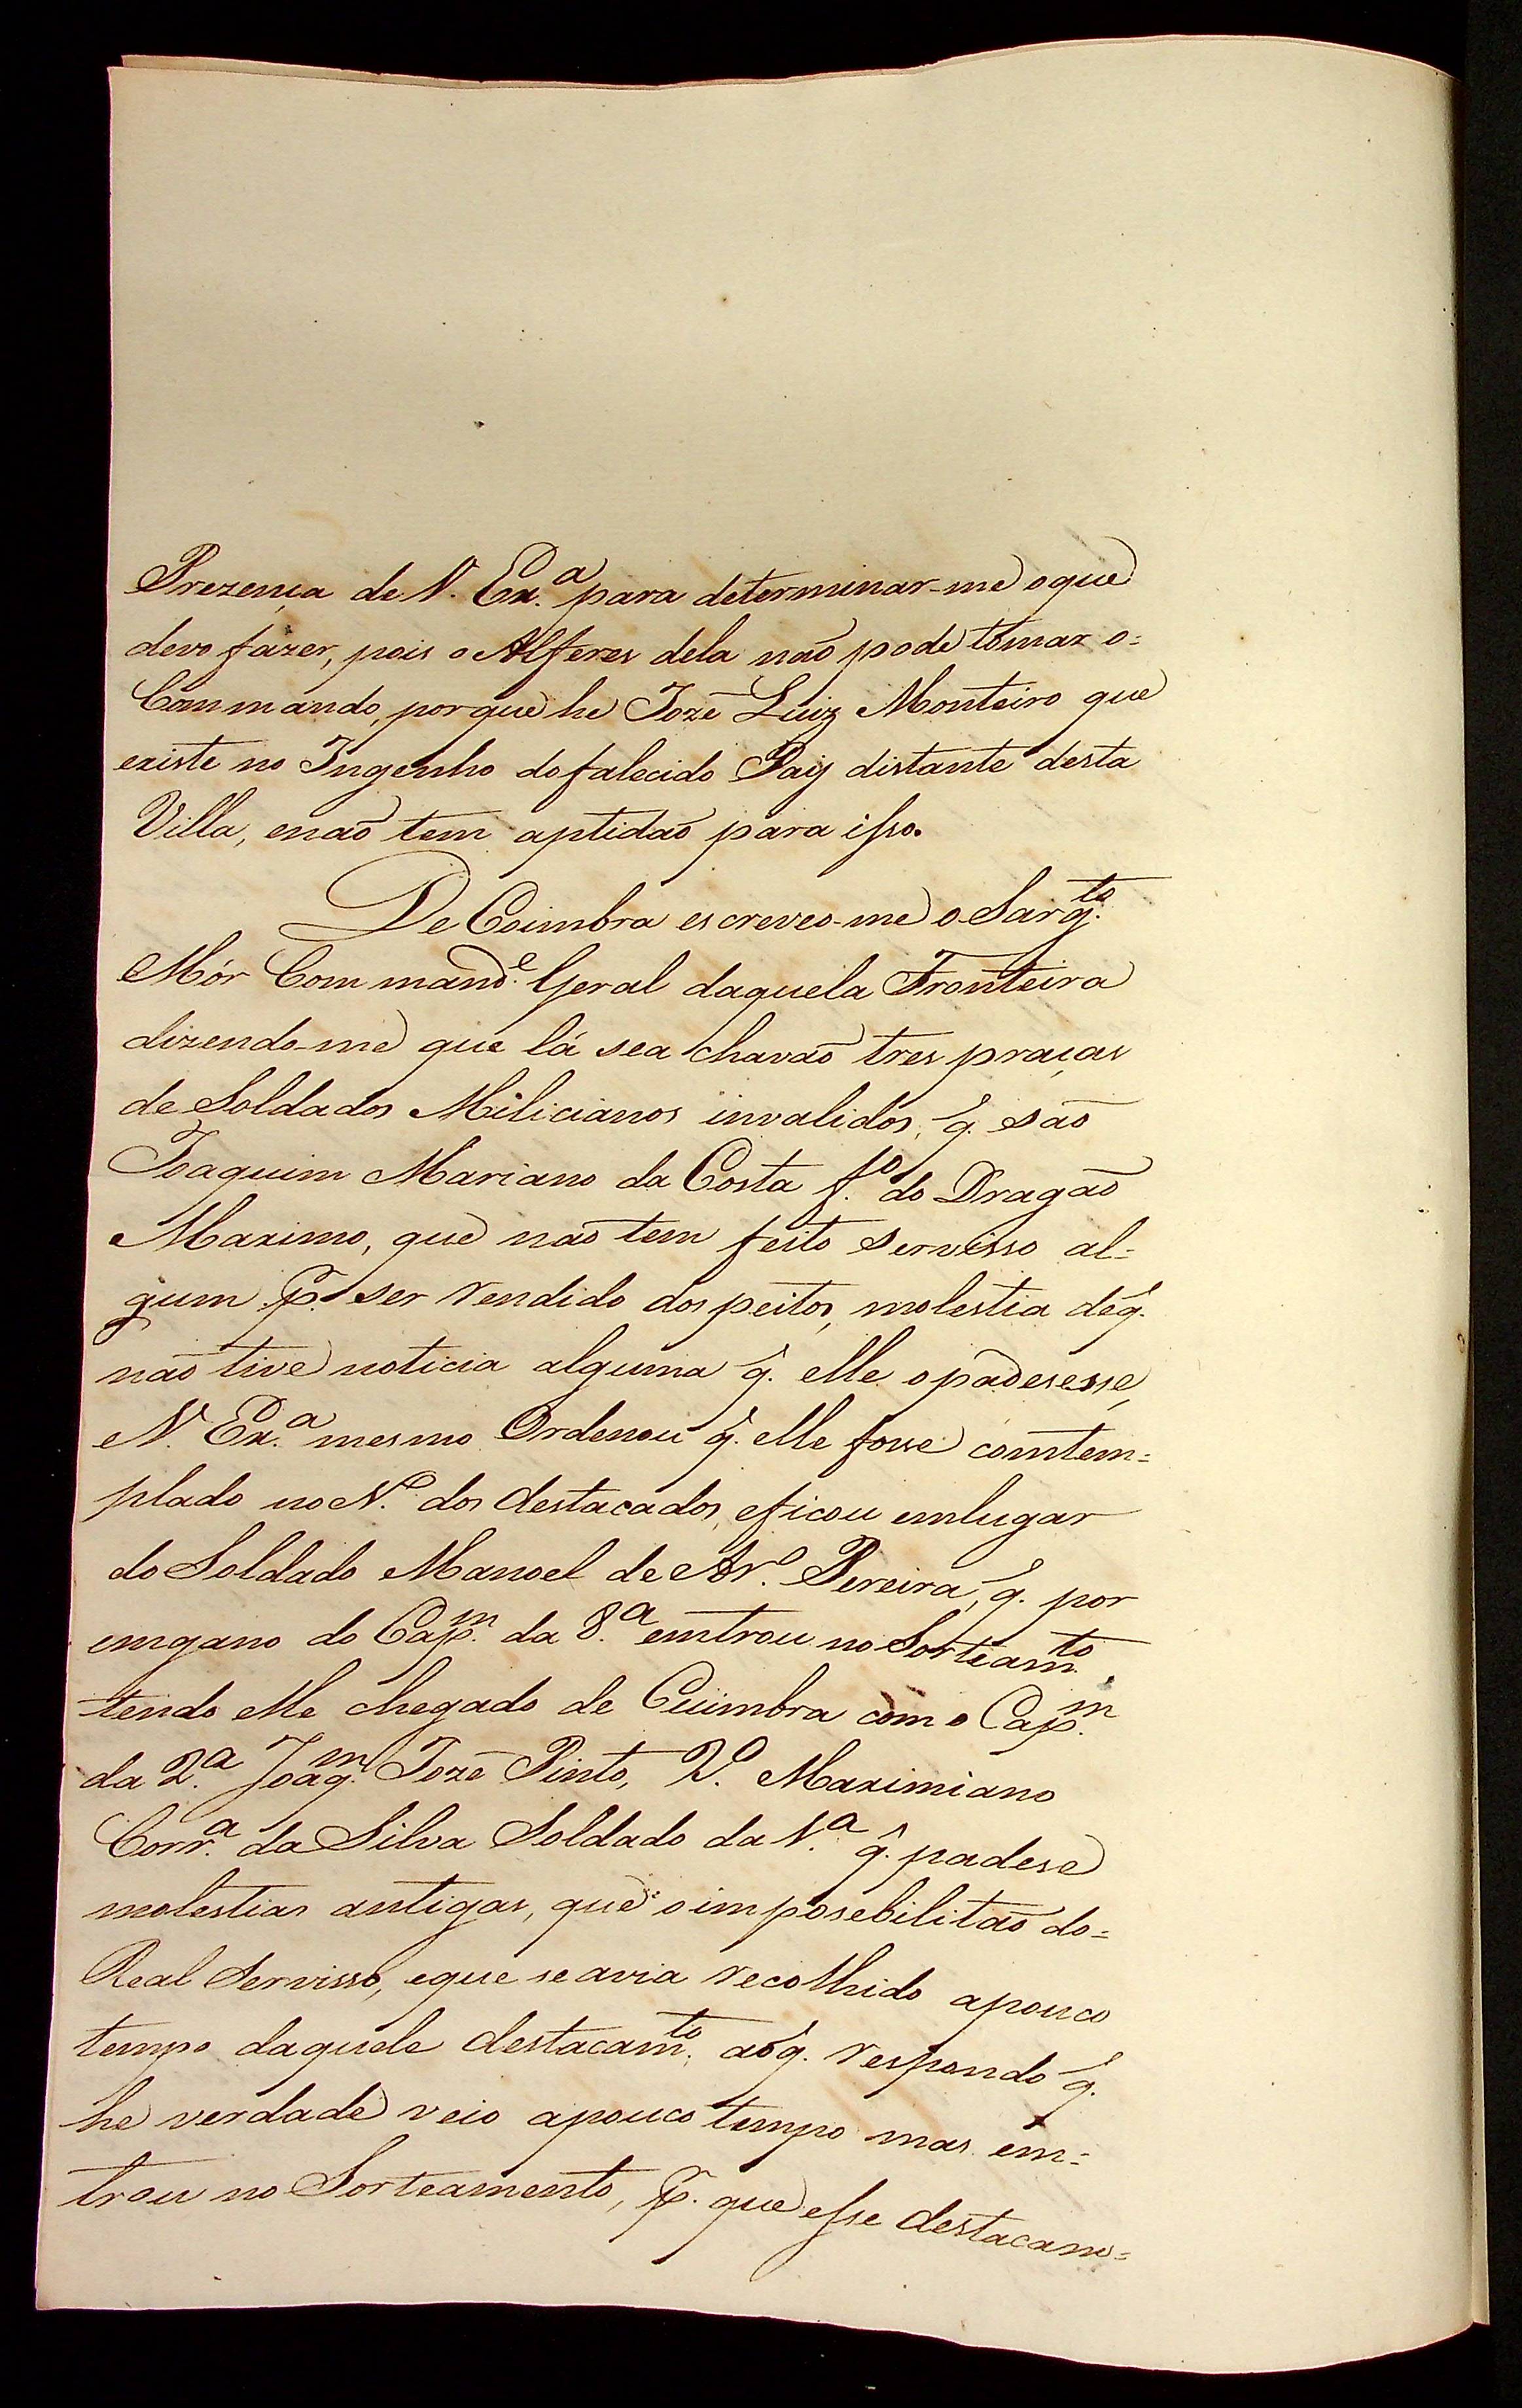 Prezença de V. Ex.ª para determinar-me oque
devo fazer, pois o Alferes dela naõ pode tomar o=
Commando, porque he Joze Luiz Monteiro que
existe no Ingenho do falecido Pay distante desta
Villa, enaõ tem aptidaõ para isso.
De Coimbra escreveo-me o Sarg.to
Mór Command.e Geral daquela Fronteira
dizendo-me que lá sea chavaõ tres praças
de Soldados Milicianos invalidos, q̃. saõ
Joaquim Mariano da Costa f.o do Dragaõ
Maximo, que naõ tem feito servisso al=
gum p.r ser rendido dos peitos, molestia deq̃.
naõ tive noticia alguma q̃. elle opadesesse,
V. Ex.ª mesmo Ordenou q̃. elle fosse comtem=
plado no N.o dos destacados, eficou emlugar
do Soldado Manoel de Ar.o Pereira, q̃. por
emgano do Cap.m da 8.ª emtrou no Sorteam.to,
tendo elle chegado de Cuimbra com o Cap.m
da 2.ª Joaq.m Joze Pinto, V. Maximiano
Corr.ª da Silva Soldado da 1.ª q̃. padese
molestias antigas, que oimposebilitaõ do=
Real Servisso, eque seavia recolhido apouco
tempo daquele destacam.to, aõq̃. respondo q̃.
he verdade veio apouco tempo mas em=
trou no Sorteamento, p.r que esse destacam=